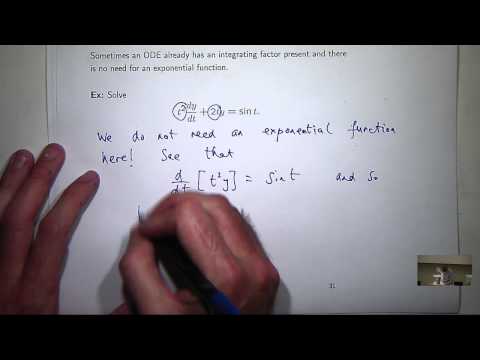 Sometimes an ODE already has an integrating factor present and there
is no need for an exponential function.
Ex: Solve
t² dy/dt + 2ty = sin t.
We do not need an exponential function
here! See that
d/dt [t²y] = sin t and so
31